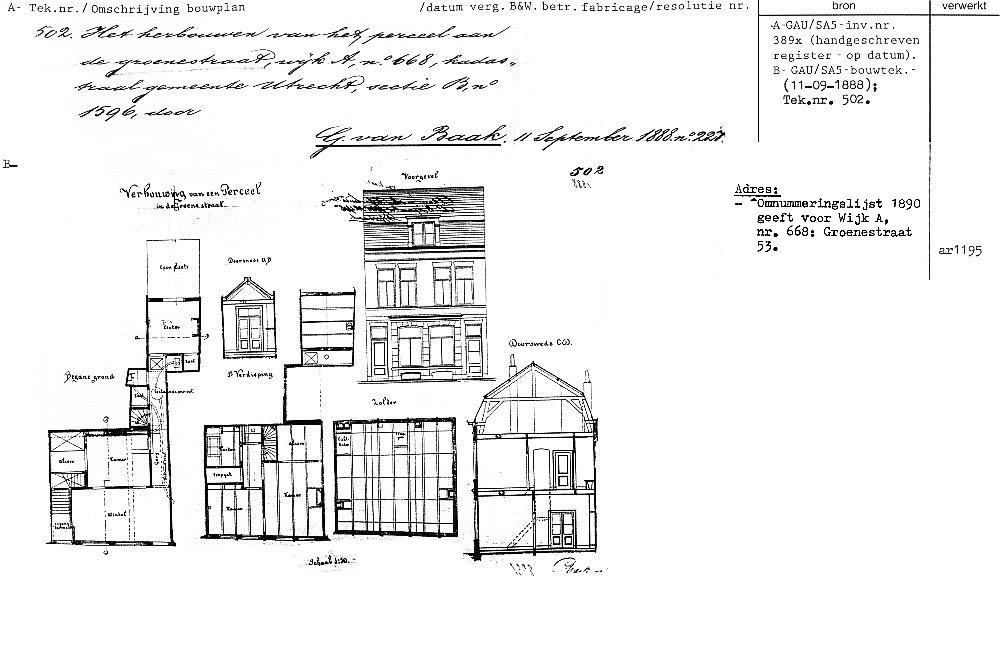 A- Tek.nr./Omschrijving bouwplan /datum verg. B&W. betr. fabricage/resolutie nr. bron verwerkt
502. Het herbouwen van het, perceel aan
de groenestraat, wijk A, no 668, kadas„
traal gemeente Utrecht, sectie B, no
1596, door
G. van Baak. 11 September 1888. no 227.
A-GAU/SA5-inv.nr.
389x (handgeschreven
register - op datum).
B- GAU/SA5-bouwtek.-
(11-09-1888);
Tek.nr. 502.
B-
Verbouwing van een Perceel
in de Groenestraat
Voorgevel
502
Adres:
- Omnummeringslijst 1890
geeft voor Wijk A,
nr. 668: Groenestraat
53.
ar1195
Open plaats
Doorsnede A.B
Keuken
Doorsnede C.D.
Begane grond
1e Verdieping
Zolder
Kamer
Alcoof
Winkel
Gang
Keuken
Kamer
Kamer
Schaal 1:50.